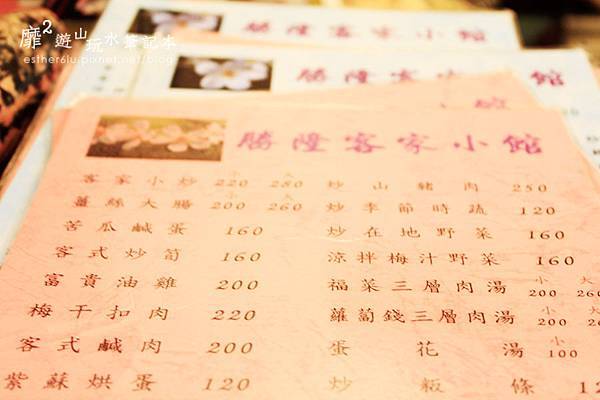 靡² 遊山玩水筆記本
esther6lu.pixnet.net/blog
勝隆客家小館
勝隆客家小館
小館
勝隆客家小館
小 大
客家小炒 220 280
薑絲大腸 200 260
苦瓜鹹蛋 160
客式炒筍 160
富貴油雞 200
梅干扣肉 220
客式鹹肉 200
紫蘇烘蛋 120
炒山豬肉 250
炒季節時蔬 120
炒在地野菜 160
涼拌梅汁野菜 160
小 大
福菜三層肉湯 200 260
小 大
蘿蔔錢三層肉湯 200
小
蛋花湯 100
炒粄條